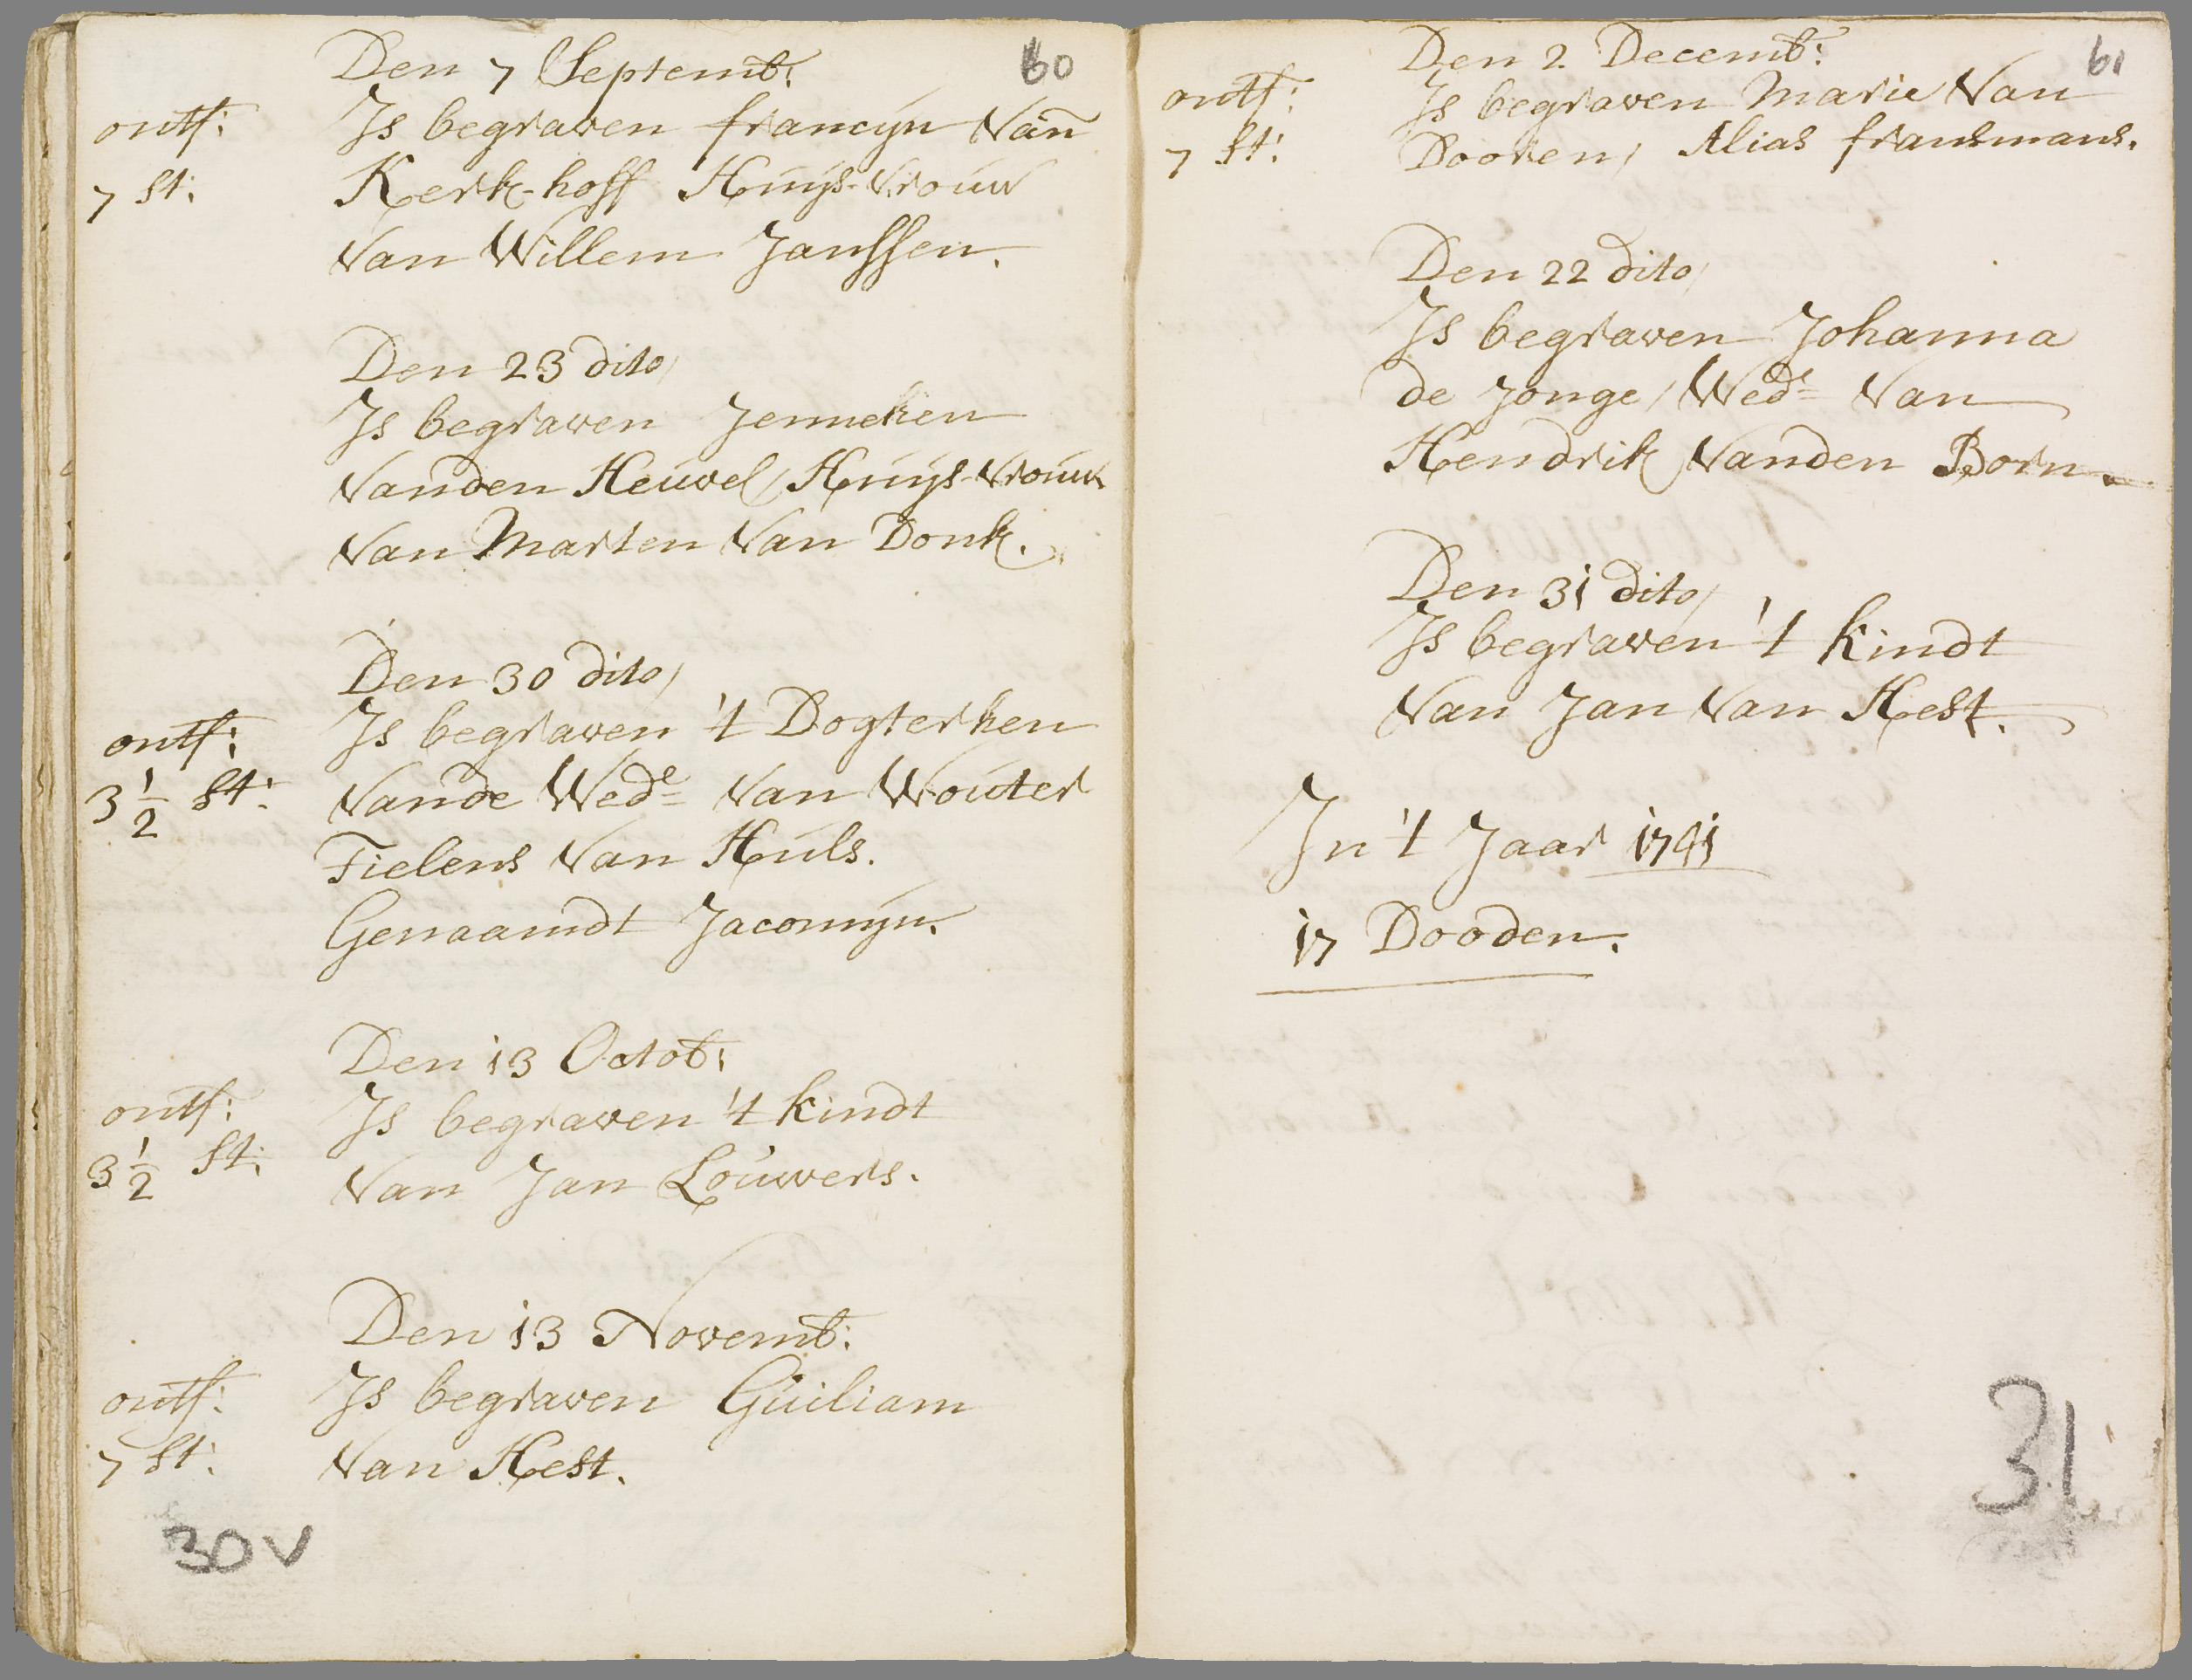 60
Den 7 Septemb:
ontf: Is begraven francijn Van
7 st: Kerk-hoff Huijs-Vrouw
Van Willem Janssen.
Den 23 dito,
Is begraven Jenneken
Vanden Heuvel, Huijs-Vrouw
Van Marten Van Donk.
Den 30 dito,
ontf: Is begraven 't Dogterken
3 1/2 st: Vande Wede Van Wouter
Tielens Van Huls.
Genaamdt Jacomijn.
Den 13 Octob:
ontf: Is begraven 't kindt
3 1/2 st: Van Jan Louwers.
Den 13 Novemb:
ontf: Is begraven Guiliam
7 st: Van Hest.
30V
61
Den 2 Decemb:
ontf: Is begraven Marie Van
7 st: Dooren, Alias fransmans.
Den 22 dito,
Is begraven Johanna
de Jonge, Wede Van
Hendrik Vanden Born.
Den 31 dito,
Is begraven 't kindt
Van Jan Van Hest.
In 't Jaar 1741
17 Dooden.
31